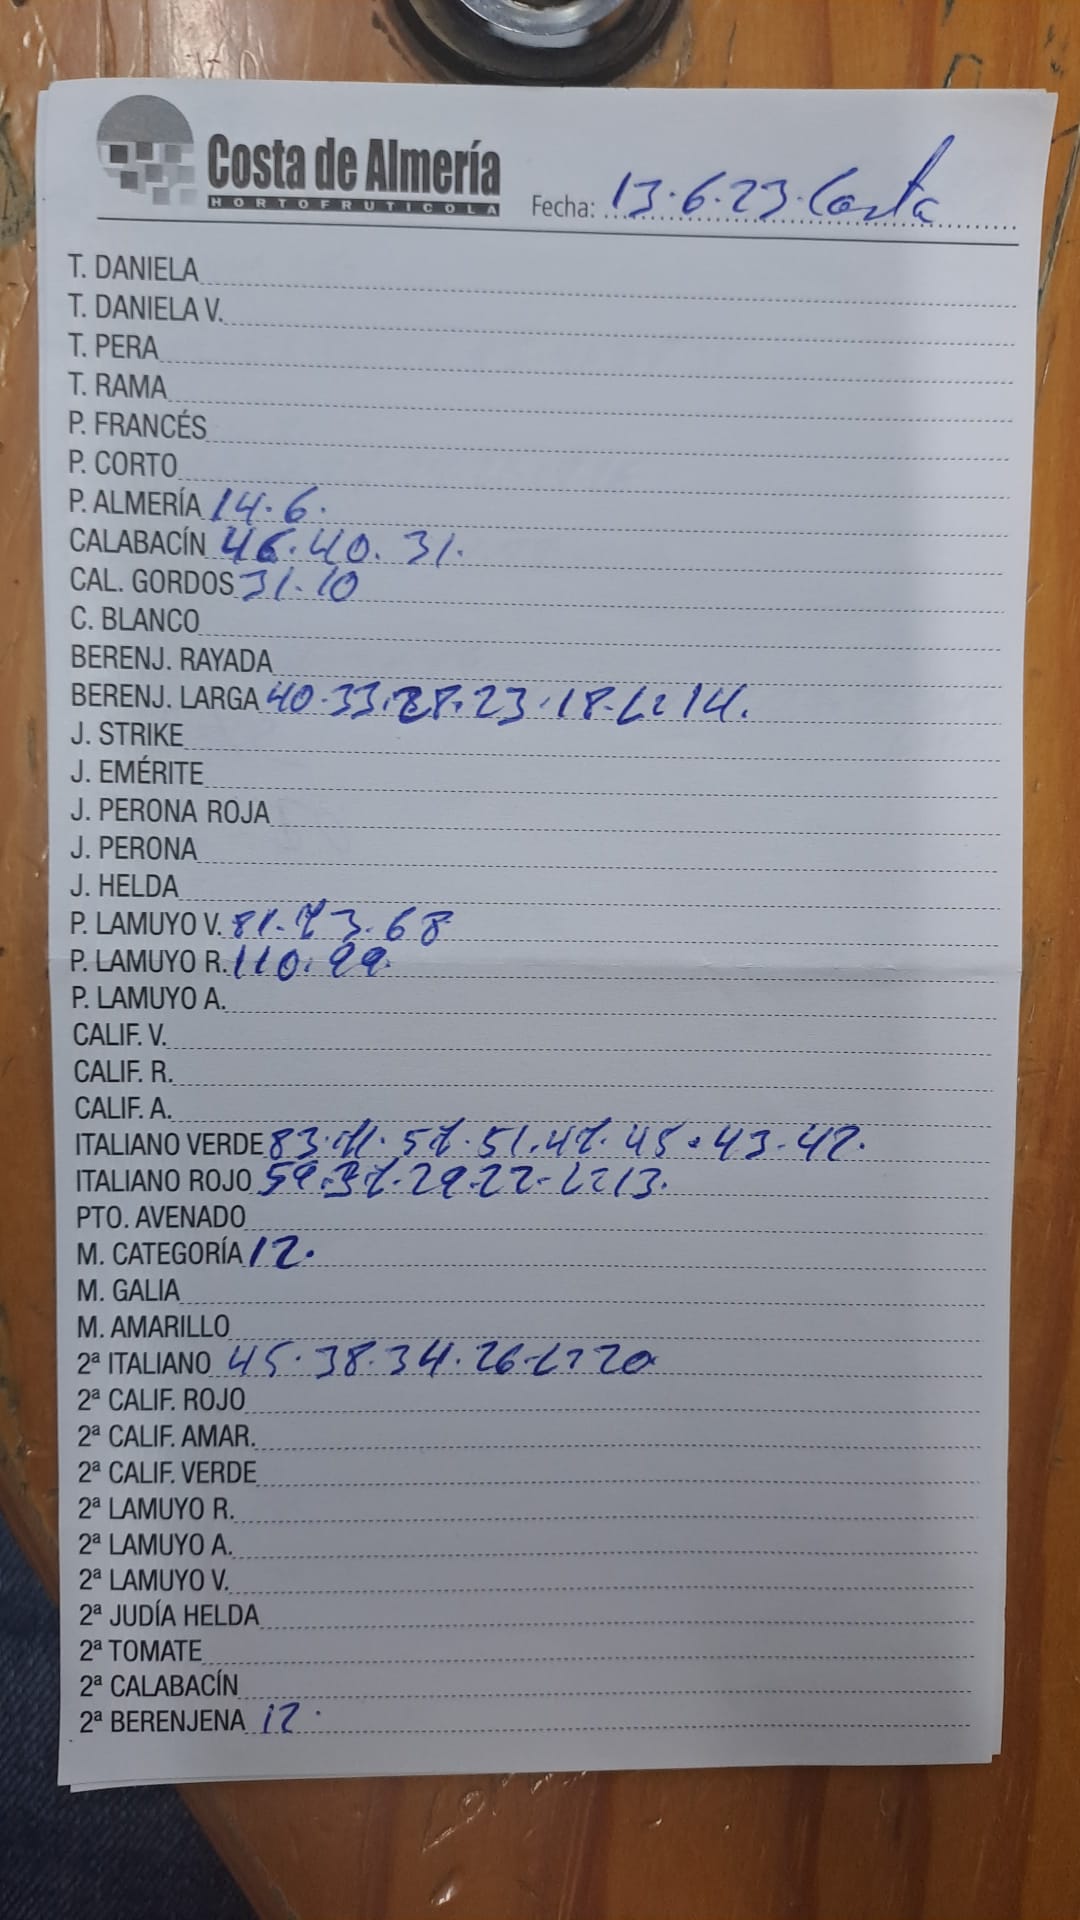 Costa de Almería
HORTOFRUTICOLA
Fecha: 13.6.23. Costa
T. DANIELA
T. DANIELA V.
T. PERA
T. RAMA
P. FRANCÉS
P. CORTO
P. ALMERÍA 14.6.
CALABACÍN 46.40.31.
CAL. GORDOS 31.10
C. BLANCO
BERENJ. RAYADA
BERENJ. LARGA 40.33.28.23.18. 14.
J. STRIKE
J. EMÉRITE
J. PERONA ROJA
J. PERONA
J. HELDA
P. LAMUYO V. 81.73.68
P. LAMUYO R. 110.99.
P. LAMUYO A.
CALIF. V.
CALIF. R.
CALIF. A.
ITALIANO VERDE 83. 57.51.47.45.43.42.
ITALIANO ROJO 59.37.29.22- 13.
PTO. AVENADO
M. CATEGORÍA 12.
M. GALIA
M. AMARILLO
2ª ITALIANO 45.38.34.26- 20
2ª CALIF. ROJO
2ª CALIF. AMAR.
2ª CALIF. VERDE
2ª LAMUYO R.
2ª LAMUYO A.
2ª LAMUYO V.
2ª JUDÍA HELDA
2ª TOMATE
2ª CALABACÍN
2ª BERENJENA 12.